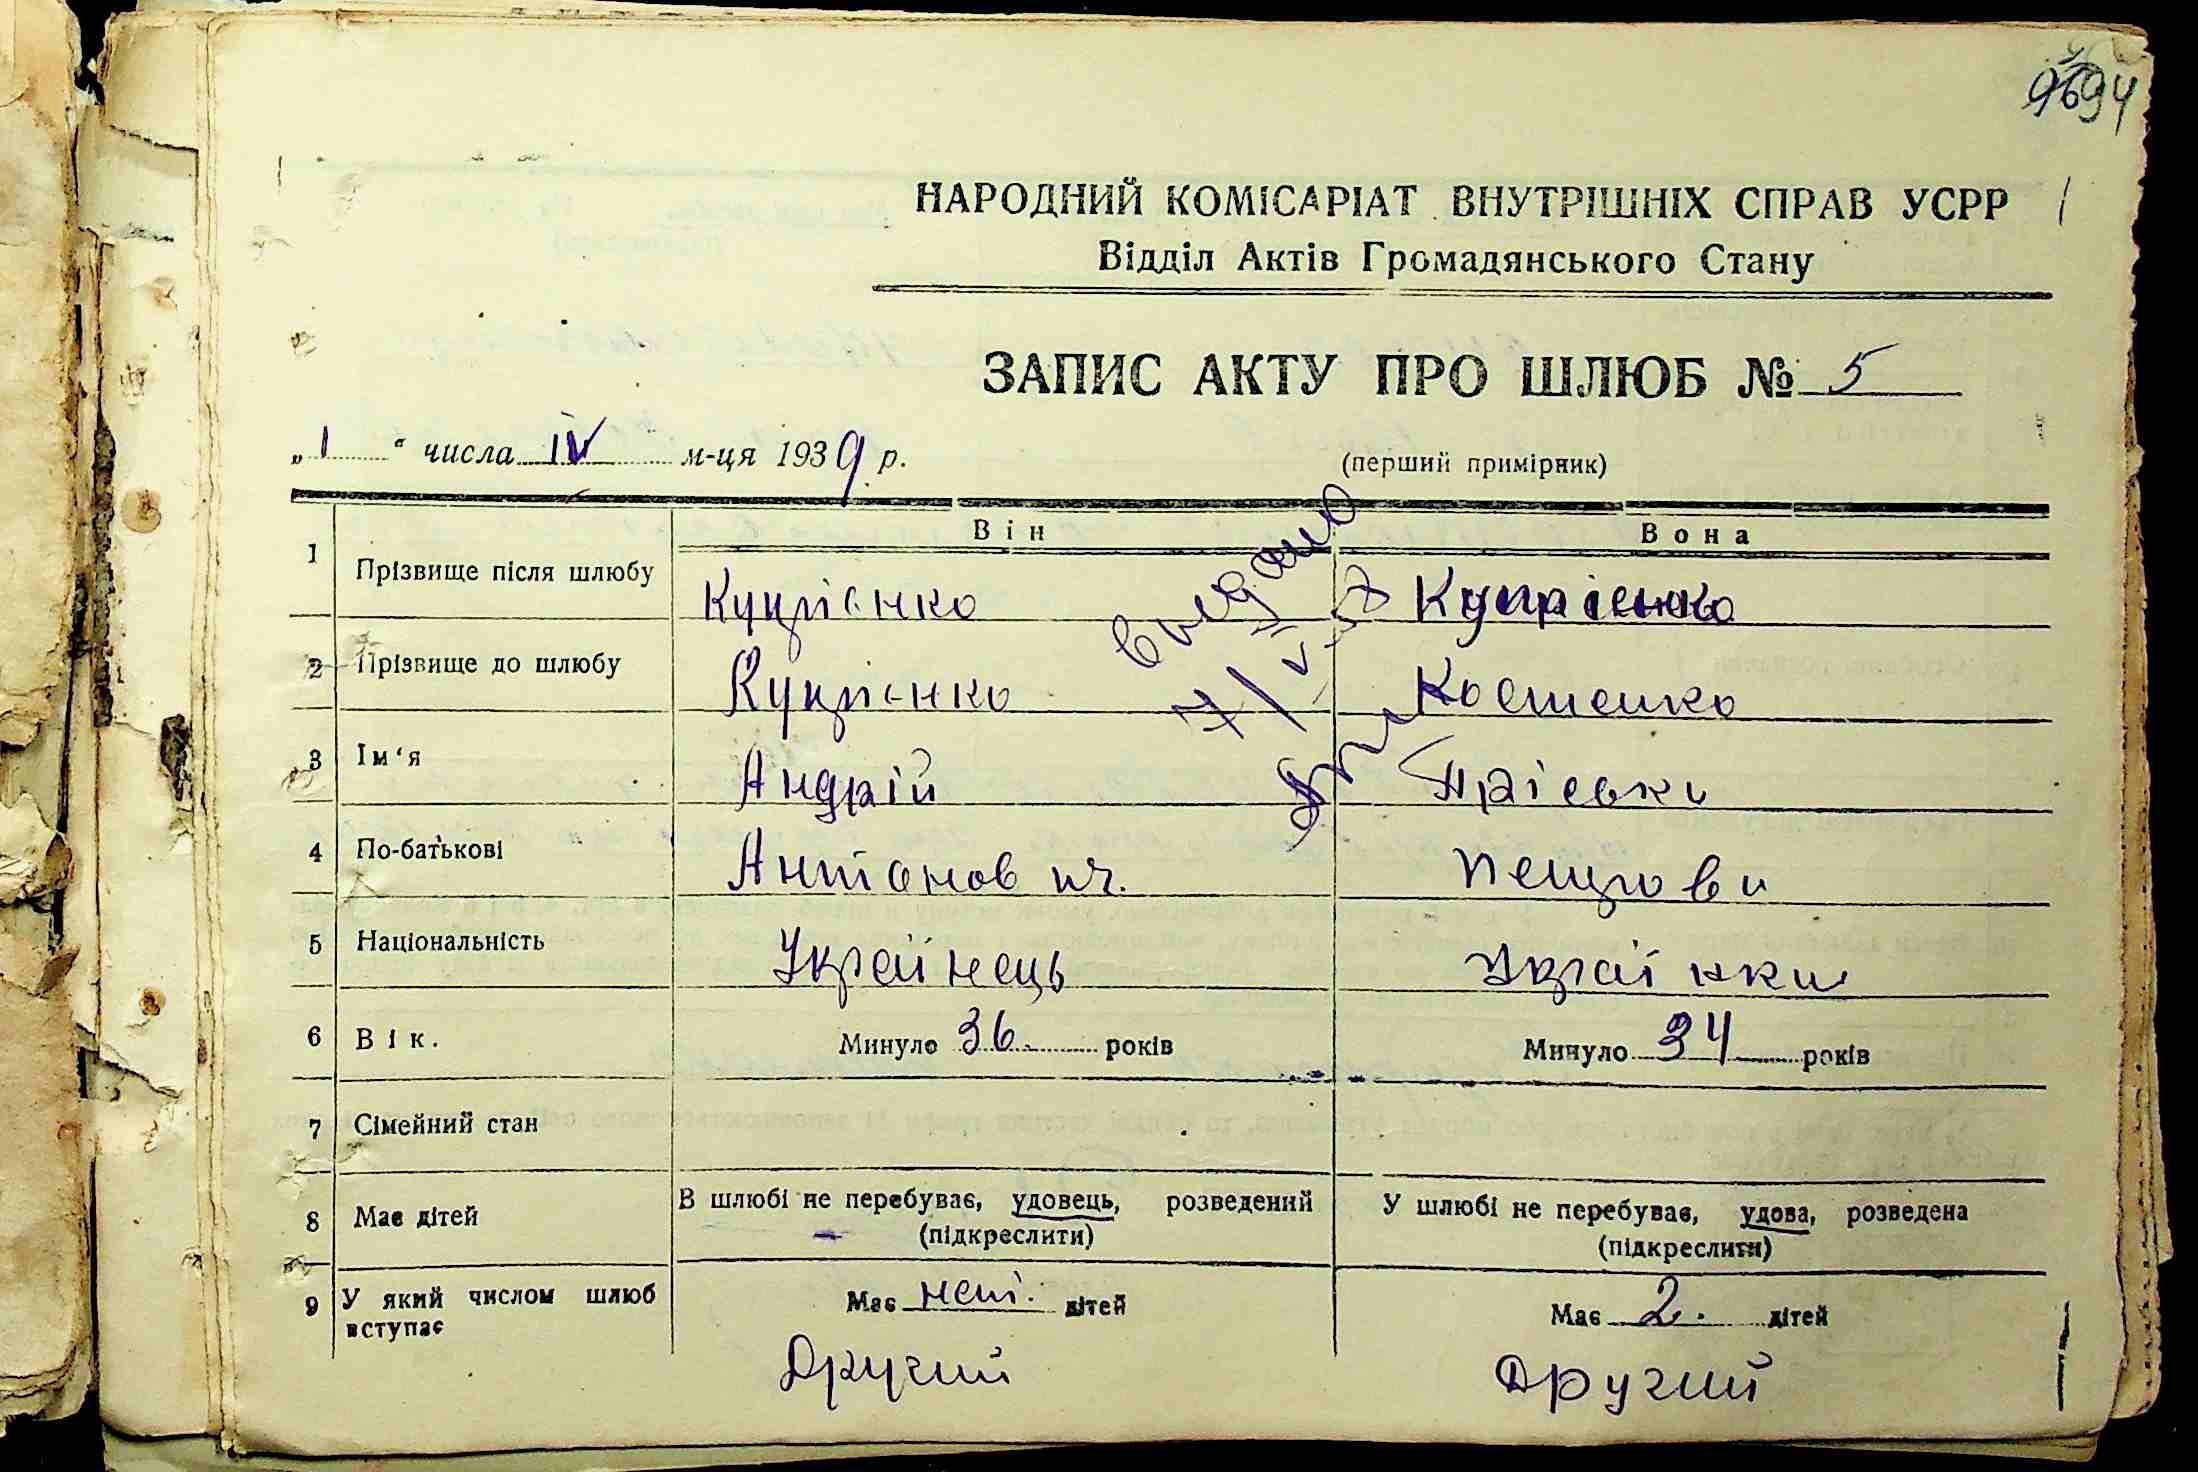 94
НАРОДНИЙ КОМІСАРІАТ ВНУТРІШНІХ СПРАВ УСРР
Відділ Актів Громадянського Стану
ЗАПИС АКТУ ПРО ШЛЮБ № 5
„1“ числа IV м-ця 1939 р.
(перший примірник)
Він Вона
1 Прізвище після шлюбу Купрієнко Купрієнко
2 Прізвище до шлюбу Купрієнко Костенко
3 Ім‘я Андрій Пріська
4 По-батькові Антонович. Петрова
5 Національність Українець Українка
6 Вік. Минуло 36. років Минуло 34 років
7 Сімейний стан
8 Має дітей В шлюбі не перебуває, удовець, розведений У шлюбі не перебуває, удова, розведена
(підкреслити) (підкреслити)
9 У який числом шлюб вступає Має неті. дітей Має 2. дітей
Другий Другий
видано